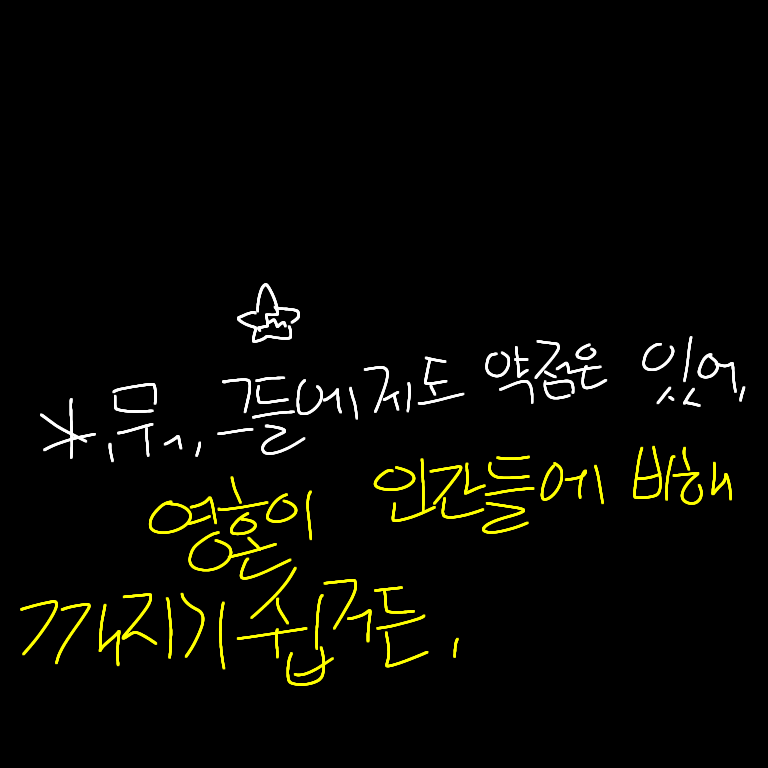 *, 뭐, 그들에게도 약점은 있어,
영혼이 인간들에 비해
깨지기 쉽거든,